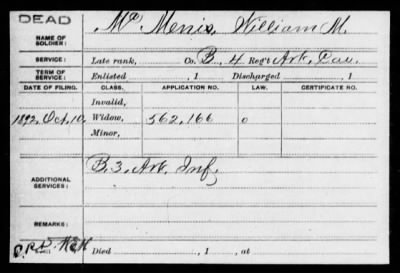 DEAD
NAME OF SOLDIER: Mc Menis, William M.
SERVICE: Late rank, Co. B, 4 Reg't Ark. Cav.
TERM OF SERVICE: Enlisted , 1 Discharged , 1
DATE OF FILING. CLASS. APPLICATION NO. LAW. CERTIFICATE NO.
Invalid,
1892, Oct. 10. Widow, 562,166 o
Minor,
ADDITIONAL SERVICES: B. 3, Ark. Inf.
REMARKS:
Died , 1 , at